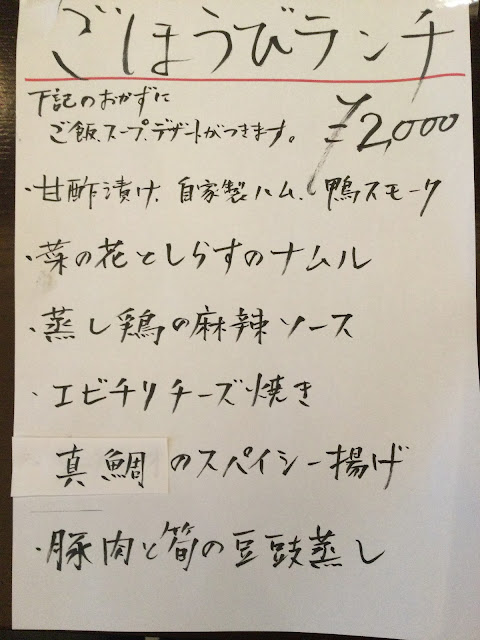 ごほうびランチ
下記のおかずに
ご飯、スープ、デザートがつきます。 ¥2,000
・甘酢漬け、自家製ハム、鴨スモーク
・菜の花としらすのナムル
・蒸し鶏の麻辣ソース
・エビチリチーズ焼き
真鯛のスパイシー揚げ
・豚肉と筍の豆豉蒸し